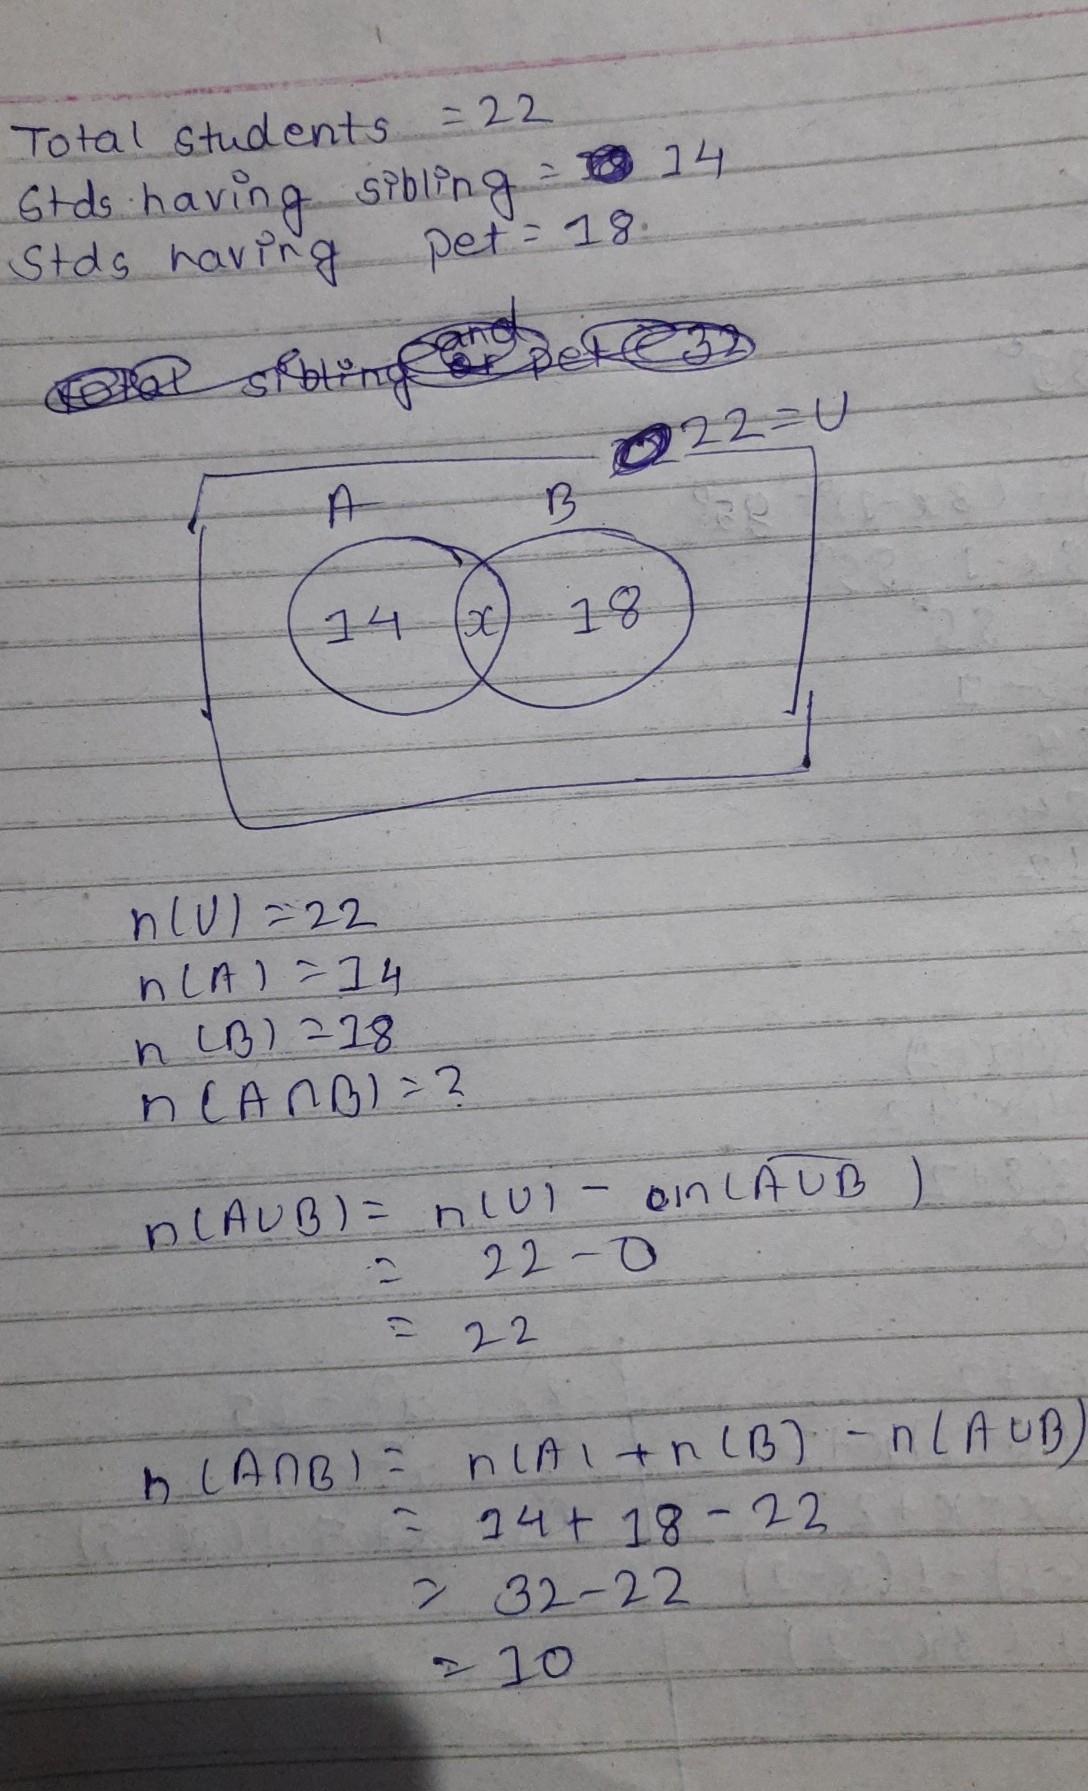 Total students = 22
Stds having sibling = 14
Stds having pet = 18.
sibling and or pet 32
22 = U
A B
14 x 18
n(U) = 22
n(A) = 14
n (B) = 18
n (A∩B) = ?
n(A∪B) = n(U) - n(A̅∪̅B̅)
= 22 - 0
= 22
n (A∩B) = n(A) + n(B) - n(A∪B)
= 14 + 18 - 22
= 32 - 22
= 10